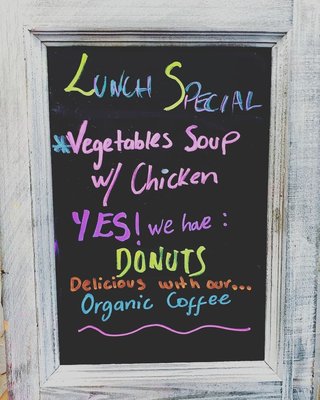 Lunch Special
*Vegetables Soup
w/ Chicken
YES! we have :
DONUTS
Delicious with our...
Organic Coffee